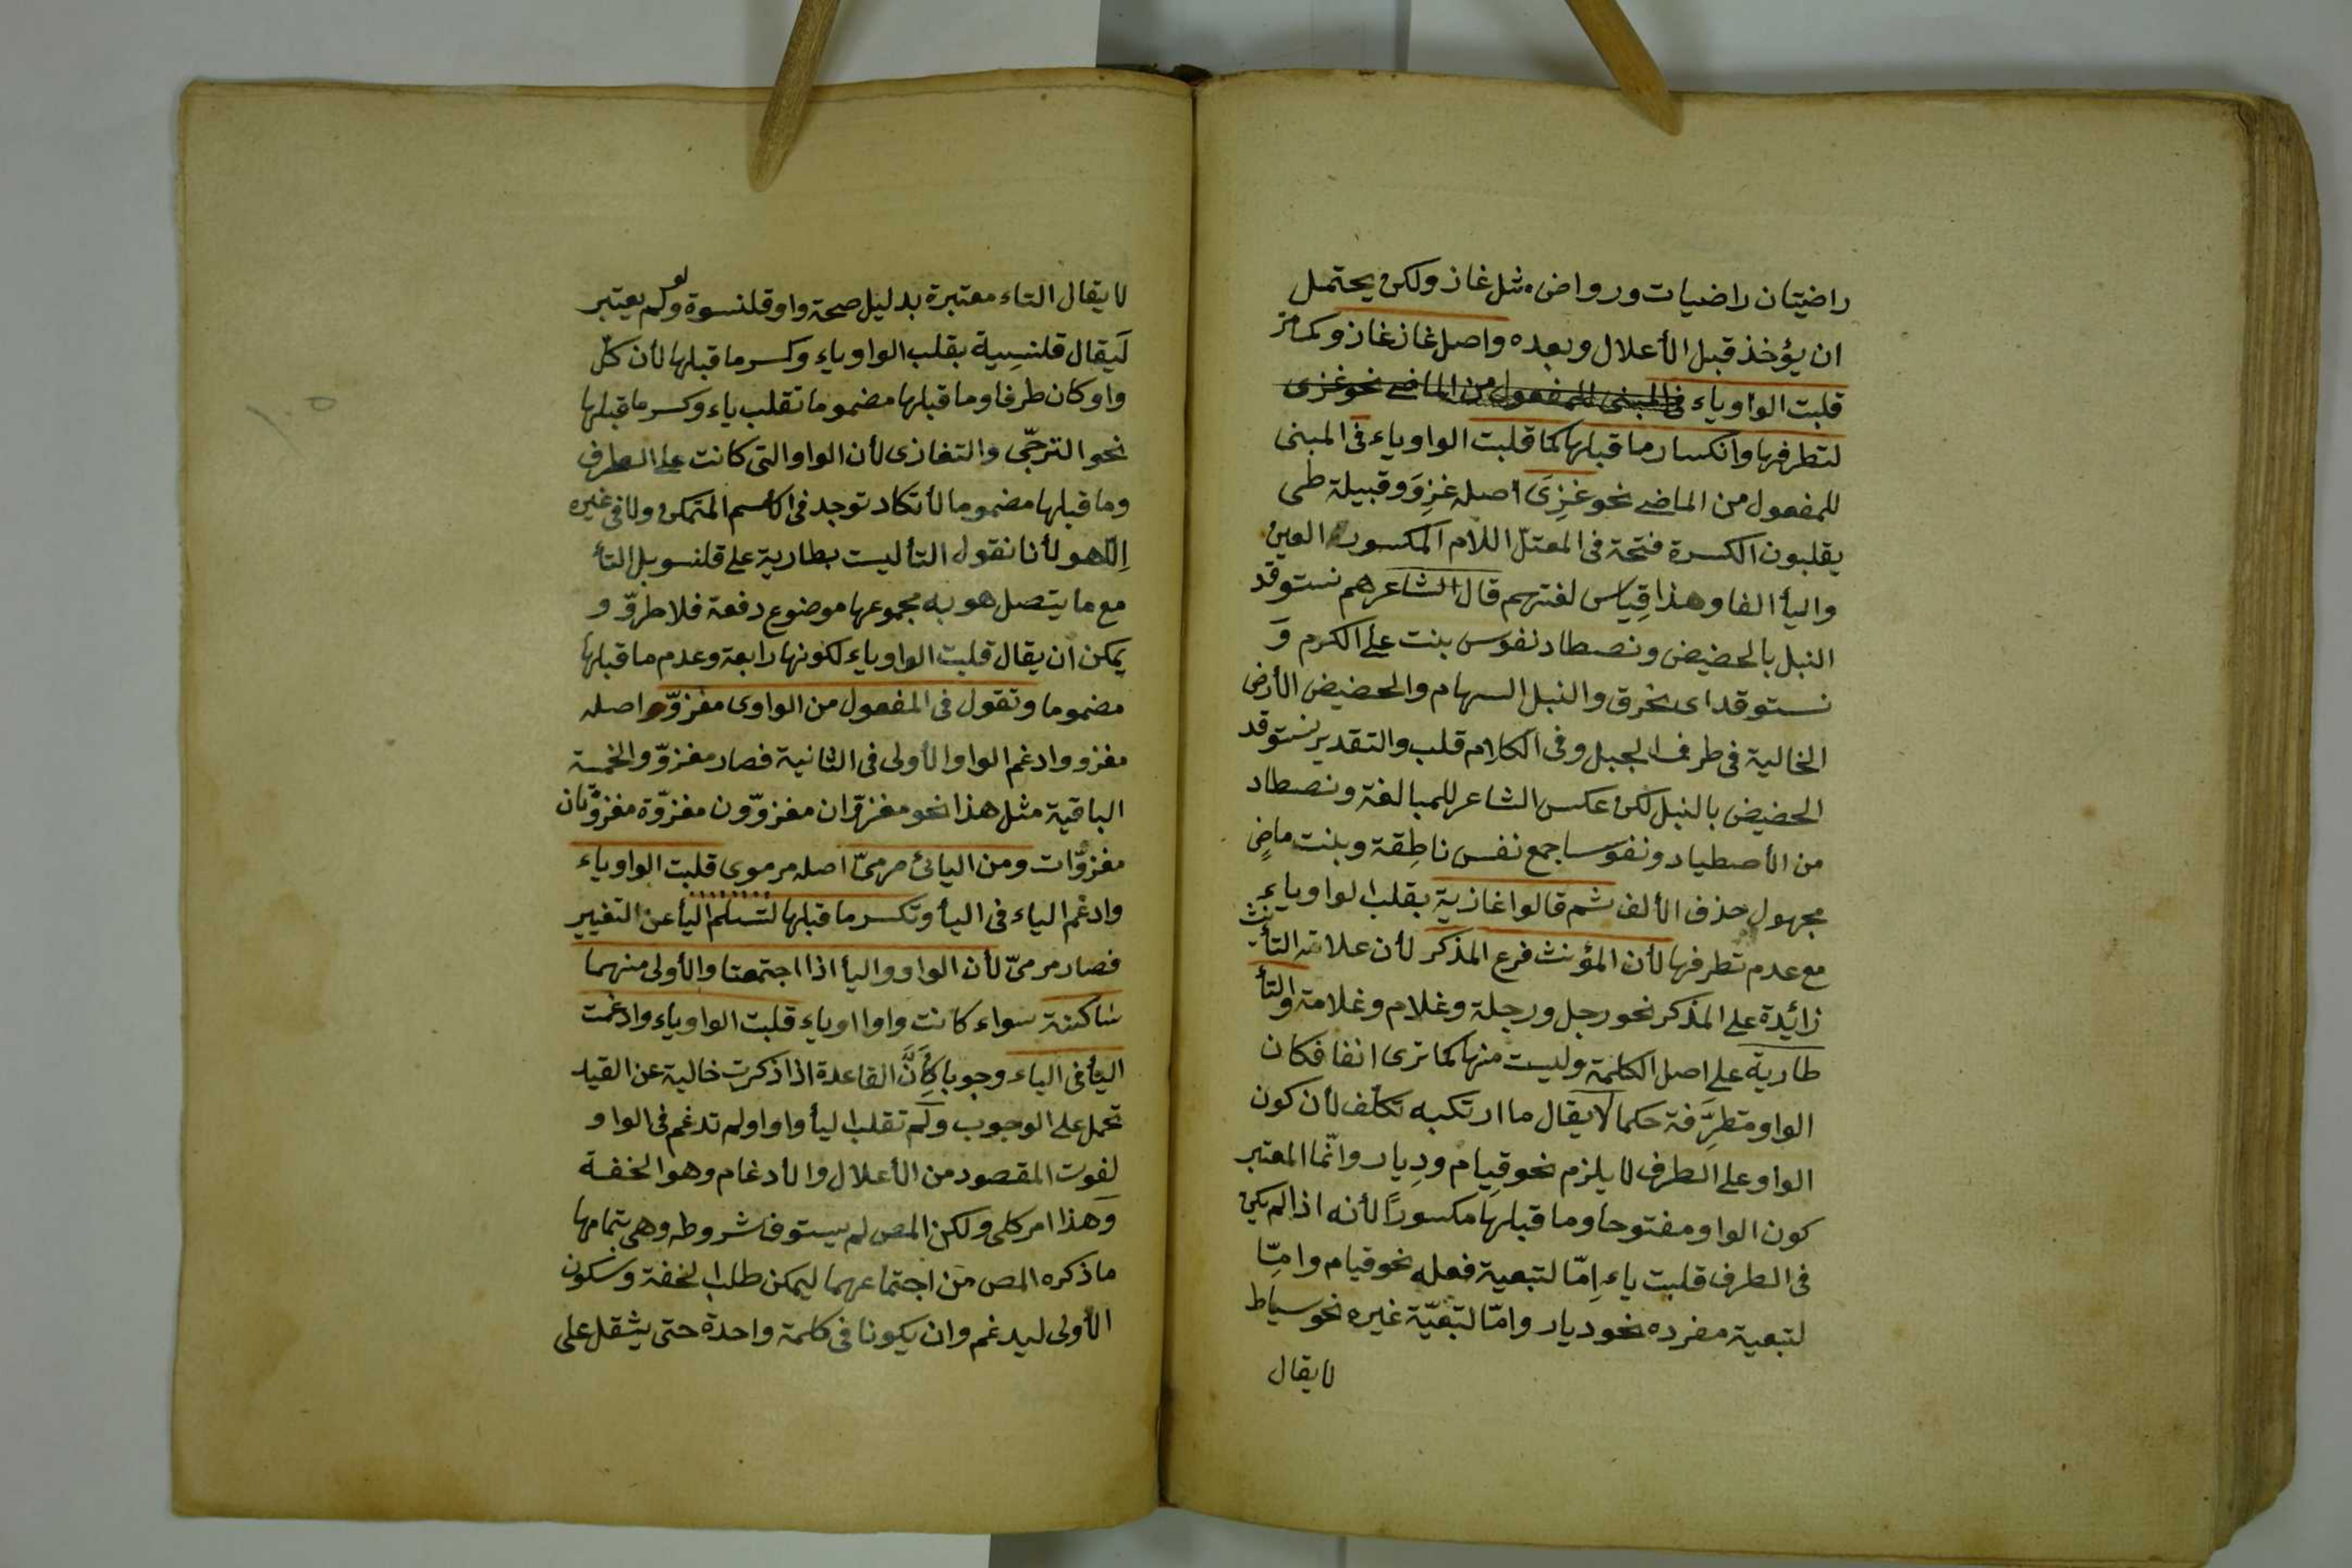 راضيتان راضيات ورواض مثل غاز ولكن يحتمل
ان يؤخذ قبل الأعلال وبعده واصل غاز غازو كما مر
قلبت الواو ياء فى المبنى للمفعول من الماضى نحو غزى
لتطرفها وانكسار ما قبلها كما قلبت الواو ياء فى المبنى
للمفعول من الماضى نحو غزِىَ اصله غزِوَ وقبيلة طى
يقلبون الكسرة فتحة فى المعتلّ اللام المكسور العين
واليأ الفا وهذا قِياس لغتهم قال الشاعر هم نستوقد
النبل بالحضيض ونصطاد نفوس بنت على الكرم وَ
نستوقد اى نخرق والنبل السهام والحضيض الأرض
الخالية فى طرف الجبل وفى الكلام قلب والتقدير نستوقد
الحضيض بالنبل لكن عكس الشاعر للمبالغة ونصطاد
من الأصطياد ونفوسا جمع نفس ناطِقة وبنت ماضٍ
مجهول حذف الألف ثم قالوا غازية بقلب الواو ياء
مع عدم تطرفها لأن المؤنث فرع المذكر لأن علامة التأنيث
زائدة على المذكر نحو رجل ورجلة وغلام وغلامة والتأ
طارية على اصل الكلمة وليست منها كما ترى انفا فكان
الواو متطرِّفة حكما لا يقال ما ارتكبه تكلّف لأن كون
الواو على الطرف لا يلزم نحو قِيام ودِيار وانّما المعتبر
كون الواو مفتوحا وما قبلها مكسورًا لأنه اذا لم يكن
فى الطرف قلبت ياء اِمّا لتبعية فعله نحو قيام وامّا
لتبعية مفرده نحو ديار وامّا لتبعيّة غيره نحو سياط
لا يقال
لا يقال التاء معتبرة بدليل صحة واو قلنسوة ولو لم يعتبر
لَيقال قلنسِية بقلب الواو ياء وكسر ما قبلها لأن كلّ
واو كان طرفا وما قبلها مضموما تقلب ياء وكسر ما قبلها
نحو الترجّى والتغازى لأن الواو التى كانت على الطرف
وما قبلها مضموما لا تكاد توجد فى الأسم المتمكن ولا فى غيره
اِلّا هو لأنا نقول التأ ليست بطارية على قلنسو بل التأ
مع ما يتصل هو به مجموعها موضوع دفعة فلا طروّ و
يمكن ان يقال قلبت الواو ياء لكونها رابعة وعدم ما قبلها
مضموما وتقول فى المفعول من الواوى مغزوّ واصله
مغزوو ادغم الواو الأولى فى الثانية فصار مغزوّ والخمسة
الباقية مثل هذا نحو مغزوّان مغزوّون مغزوّة مغزوّتان
مغزوّات ومن اليائى مرمىّ اصله مرموى قلبت الواو ياء
وادغم الياء فى اليأ وتكسر ما قبلها لتسلم اليأ عن التغيير
فصار مرمىّ لأن الواو واليأ اذا اجتمعتا والأولى منهما
ساكنة سواء كانت واوا او ياء قلبت الواو ياء وادغمت
اليأ فى الياء وجوبا لأَنَّ القاعدة اذا ذكرت خالية عن القيد
تحمل على الوجوب ولم تقلب اليأ واوا ولم تدغم فى الواو
لفوت المقصود من الأعلال والأدغام وهو الخفة
وهذا امر كلى ولكن المص لم يستوف شروطه وهى بتمامها
ما ذكره المص من اجتماعهما ليمكن طلب الخفة وسكون
الأولى ليدغم وان يكونا فى كلمة واحدة حتى يثقل على